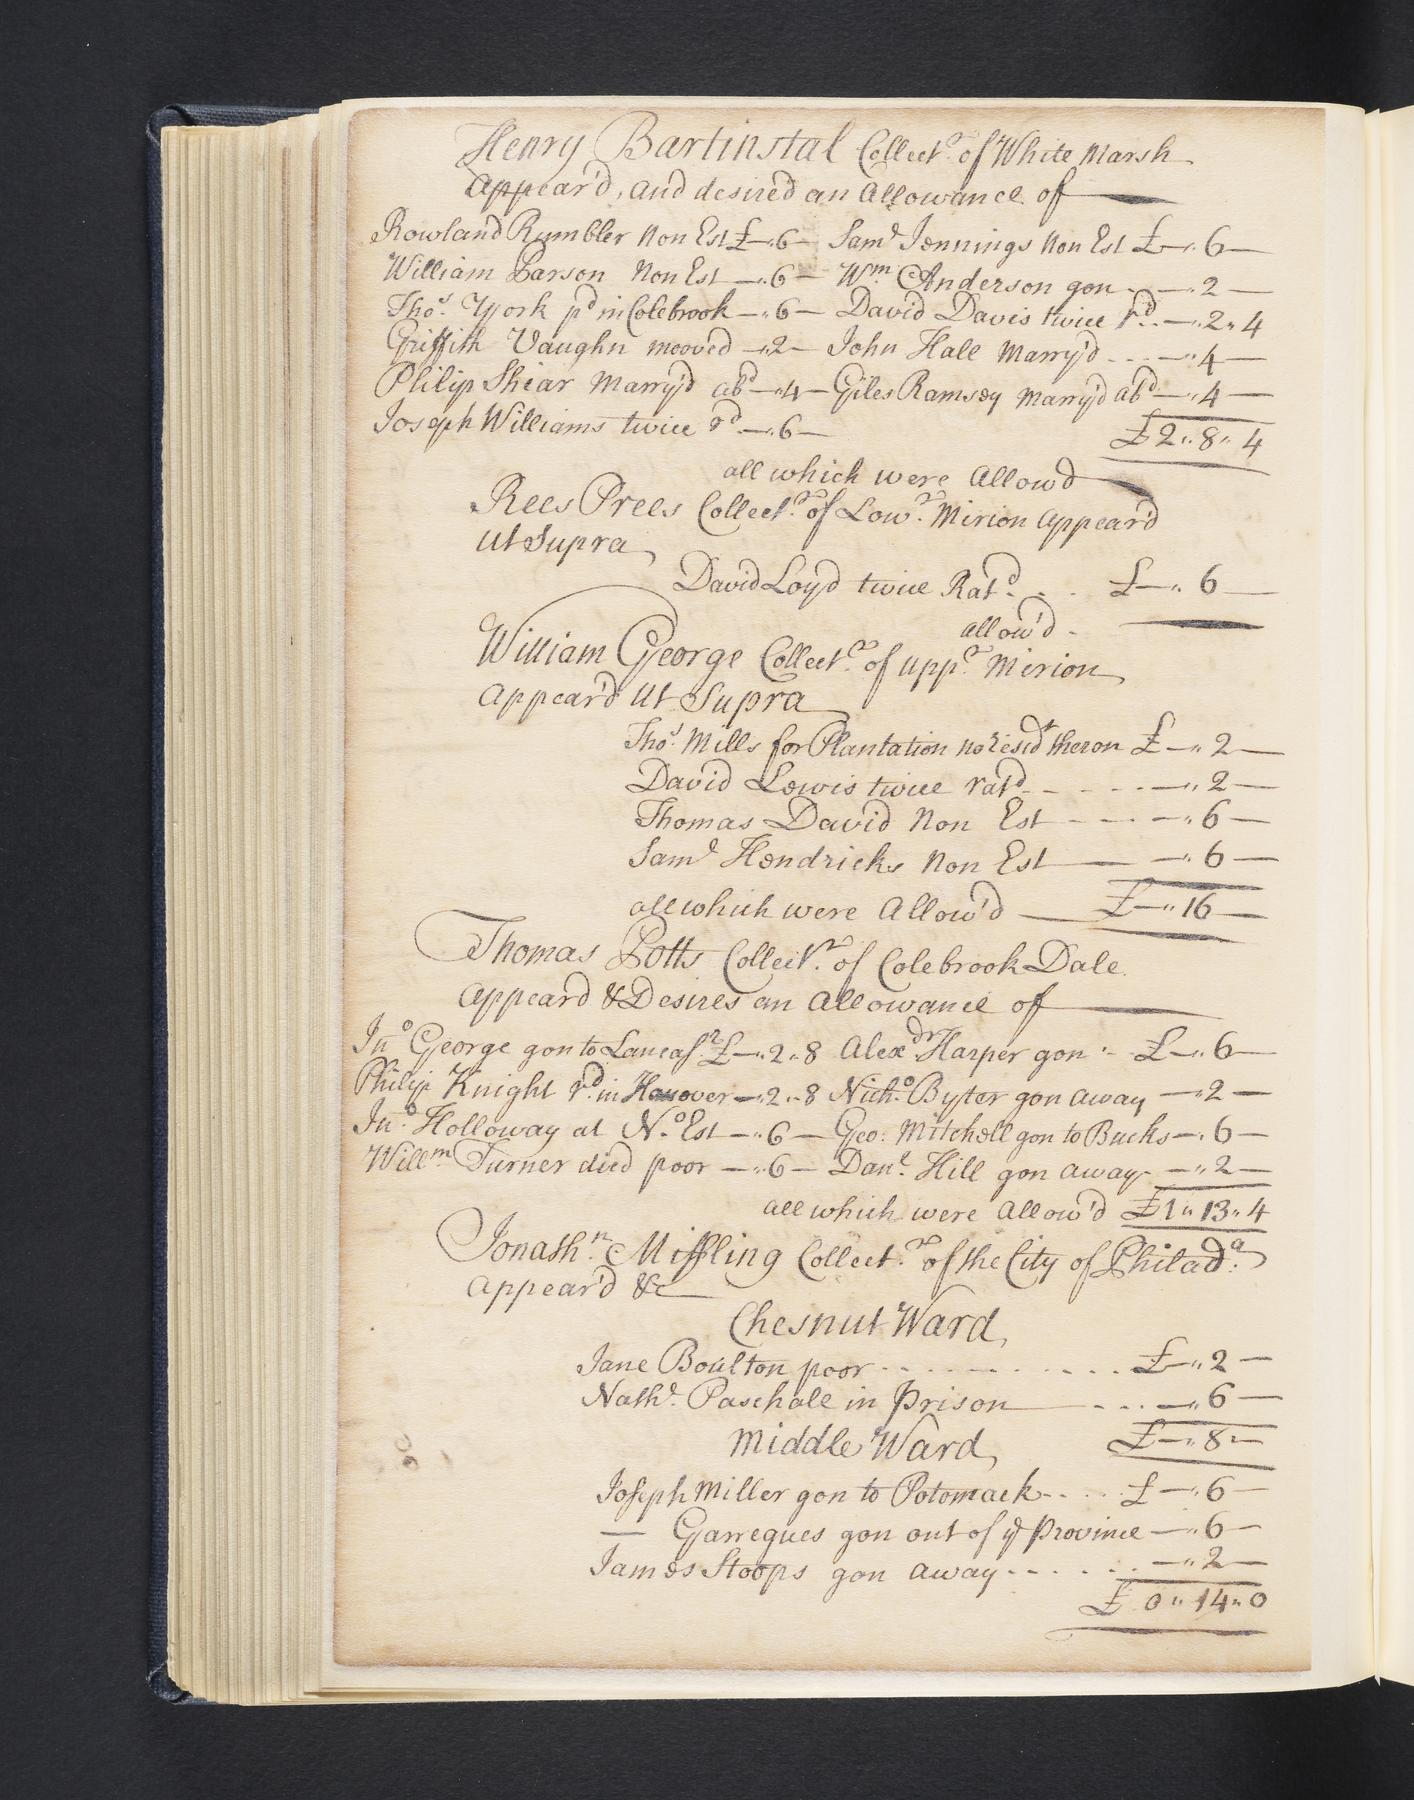 Henry Bartinstal Collectr. of White Marsh
Appear'd, and desired an Allowance of
Rowland Rumbler Non Est £—"6— Saml Jennings Non Est £—"6—
William Parson Non Est —"6— Wm. Anderson gon - —"2—
Thos. York pd in Colebrook —"6— David Davis twice rd.. —"2"4
Griffith Vaughn mooved —"2— John Hall Marry'd --- —"4—
Philip Shear Marry'd abd —"4— Giles Ramsey Marry'd abd —"4—
Joseph Williams twice rd —"6—
£2"8"4
all which were Allow'd
Rees Prees Collectr. of Lowr. Mirion Appear'd
Ut Supra
David Loyd twice Ratd. - - £—"6—
allow'd -
William George Collectr. of uppr. Merion
Appear'd Ut Supra
Thos. Mills for Plantation no resid't theron £—"2—
David Lewis twice ratd - - - - - —"2—
Thomas David Non Est - - - —"6—
Saml Hendricks Non Est — —"6—
all which were Allow'd — £—"16—
Thomas Potts Collectr. of Colebrook Dale.
Appeard & Desires an Allowance of
Jno George gon to Lancasr. £—"2"8 Alexdr Harper gon - £—"6—
Philip Knight rd. in Hanover —"2"8 Nicho. Byter gon away —"2—
Jno. Holloway at No. Est —"6— Geo: Mitchell gon to Bucks —"6—
Willm. Turner died poor —"6— Danl. Hill gon away - —"2—
all which were Allow'd £1"13"4
Jonathn. Miffling Collectr. of the City of Philada.
Appear'd &c
Chesnut Ward,
Jane Boulton poor - - - - - - - - £—"2—
Nathl. Paschall in Prison - - - —"6—
£—"8"—
Middle Ward,
Joseph Miller gon to Potomack - - - - £—"6—
— Garreques gon out of ye Province —"6—
James Stoops gon away - - - - - - —"2—
£ 0"14"0